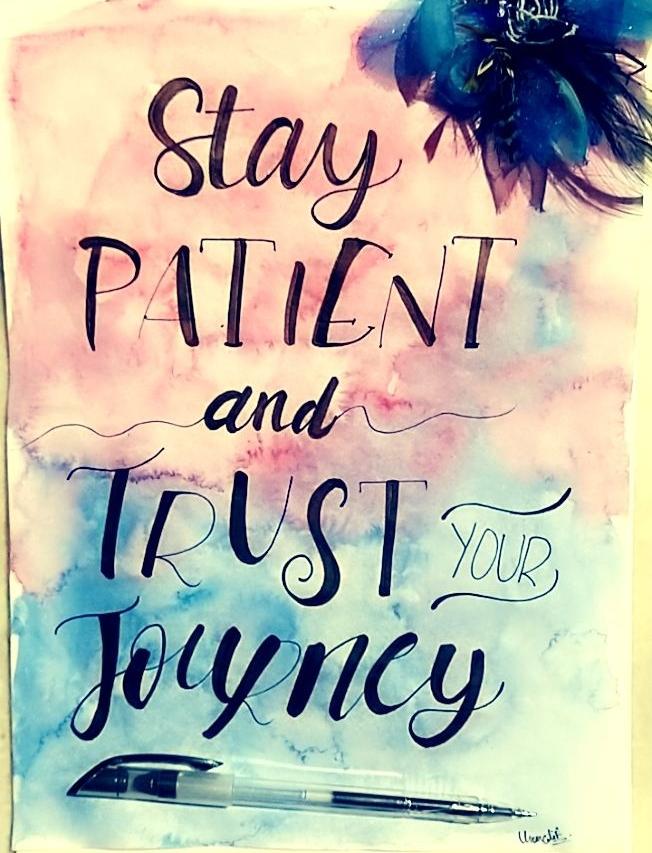 Stay
PATIENT
and
TRUST YOUR
Journey